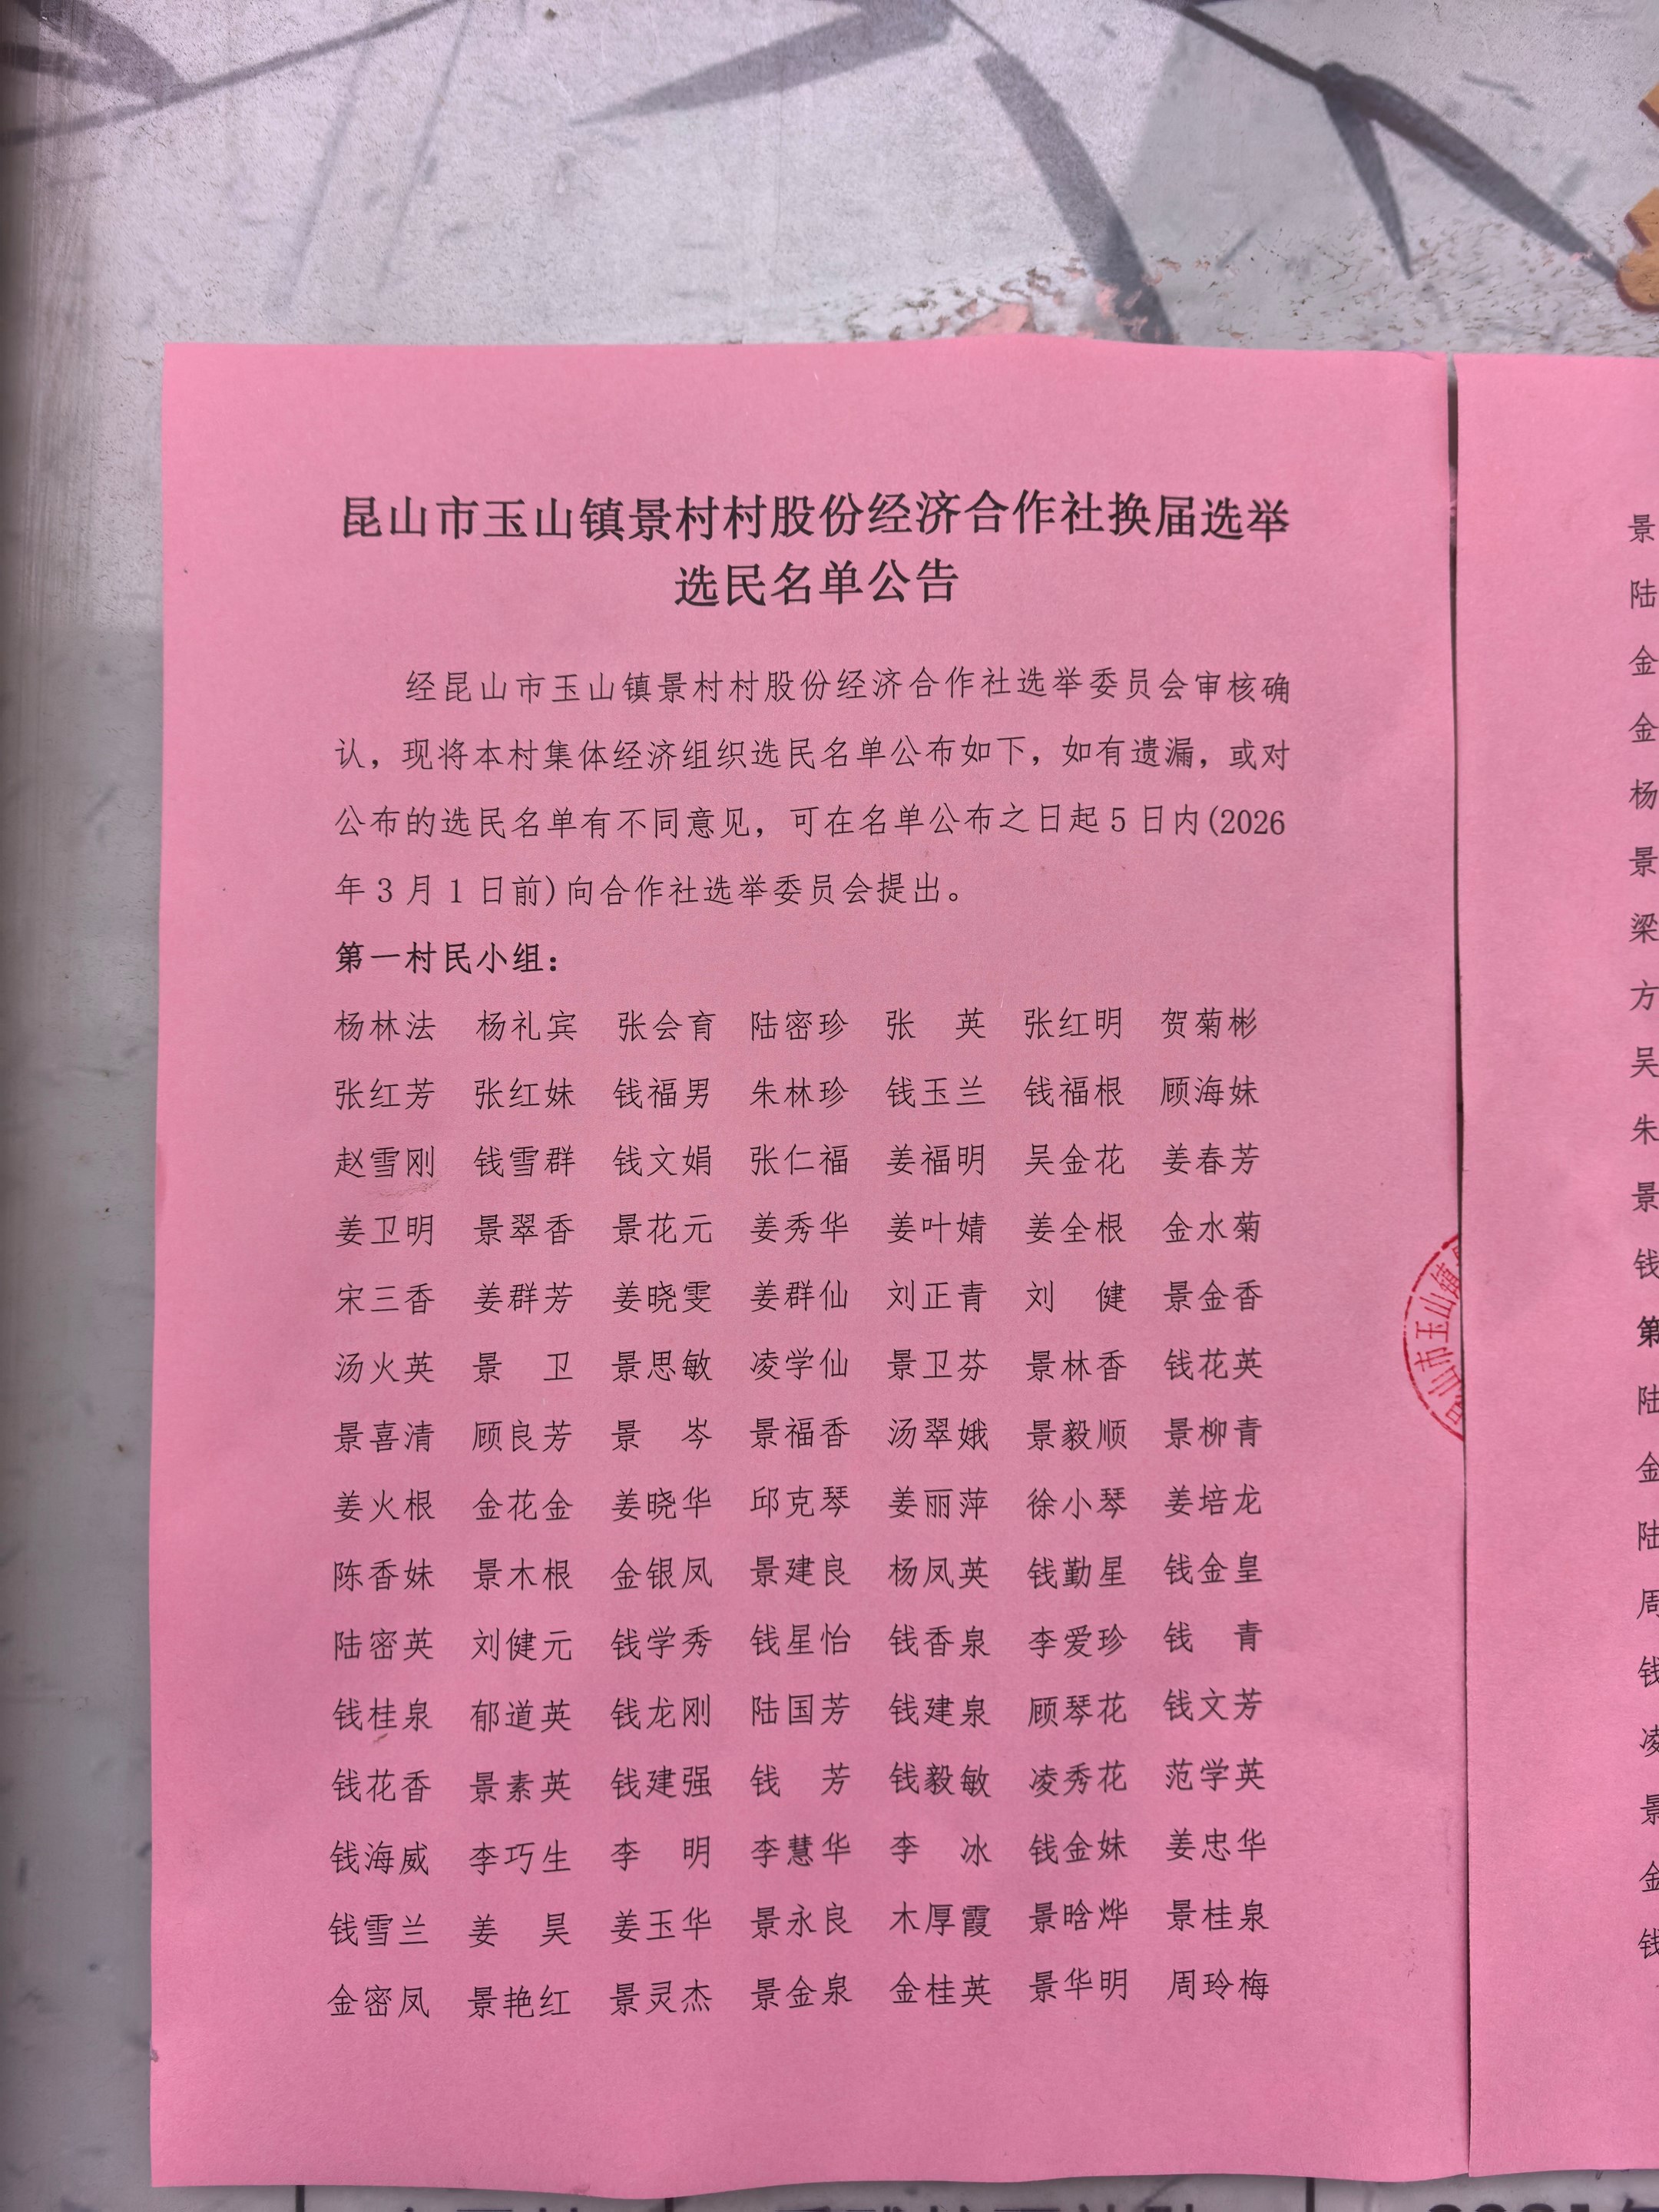 昆山市玉山镇景村村股份经济合作社换届选举
选民名单公告
经昆山市玉山镇景村村股份经济合作社选举委员会审核确
认，现将本村集体经济组织选民名单公布如下，如有遗漏，或对
公布的选民名单有不同意见，可在名单公布之日起5日内(2026
年3月1日前)向合作社选举委员会提出。
第一村民小组：
杨林法 杨礼宾 张会育 陆密珍 张 英 张红明 贺菊彬
张红芳 张红妹 钱福男 朱林珍 钱玉兰 钱福根 顾海妹
赵雪刚 钱雪群 钱文娟 张仁福 姜福明 吴金花 姜春芳
姜卫明 景翠香 景花元 姜秀华 姜叶婧 姜全根 金水菊
宋三香 姜群芳 姜晓雯 姜群仙 刘正青 刘 健 景金香
汤火英 景 卫 景思敏 凌学仙 景卫芬 景林香 钱花英
景喜清 顾良芳 景 岑 景福香 汤翠娥 景毅顺 景柳青
姜火根 金花金 姜晓华 邱克琴 姜丽萍 徐小琴 姜培龙
陈香妹 景木根 金银凤 景建良 杨凤英 钱勤星 钱金皇
陆密英 刘健元 钱学秀 钱星怡 钱香泉 李爱珍 钱 青
钱桂泉 郁道英 钱龙刚 陆国芳 钱建泉 顾琴花 钱文芳
钱花香 景素英 钱建强 钱 芳 钱毅敏 凌秀花 范学英
钱海威 李巧生 李 明 李慧华 李 冰 钱金妹 姜忠华
钱雪兰 姜 昊 姜玉华 景永良 木厚霞 景晗烨 景桂泉
金密凤 景艳红 景灵杰 景金泉 金桂英 景华明 周玲梅
山市玉山镇
景
陆
金
金
杨
景
梁
方
吴
朱
景
钱
第
陆
金
陆
周
钱
凌
景
金
钱